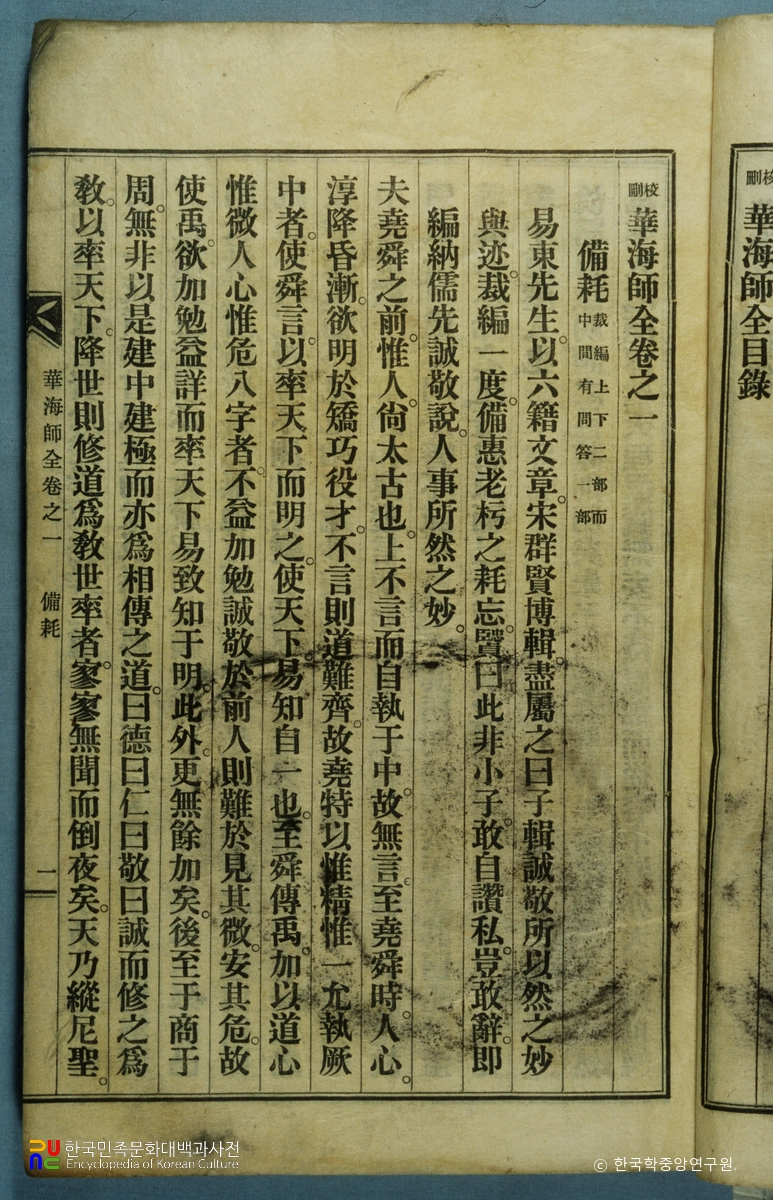 校刪 華海師全卷之一
備耗 裁編上下二部而中間有問答一部
易東先生。以六籍文章。宋群賢博輯。盡屬之曰子輯誠敬所以然之妙
與迹。裁編一度。備惠老朽之耗忘。賢曰此非小子。敢自讚私。豈敢辭。即
編納儒先誠敬說。人事所然之妙。
夫堯舜之前。惟人。尙太古也。上不言而自執于中。故無言。至堯舜時。人心。
淳降昏漸。欲明於矯巧役才。不言則道難齊。故堯特以惟精惟一允執厥
中者。使舜言。以率天下而明之。使天下。易知自一也。至舜傳禹。加以道心
惟微人心惟危八字者。不益加勉誠敬於前人則難於見其微。安其危。故
使禹。欲加勉益詳而率天下易致知于明。此外。更無餘加矣。後至于商于
周。無非以是建中建極而亦爲相傳之道。曰德曰仁曰敬曰誠而修之爲
敎。以率天下。降世則修道爲敎世率者。寥寥無聞而倒夜矣。天乃縱尼聖。
華海師全卷之一 備耗 一
校刪 華海師全目錄
한국민족문화대백과사전
Encyclopedia of Korean Culture
© 한국학중앙연구원.